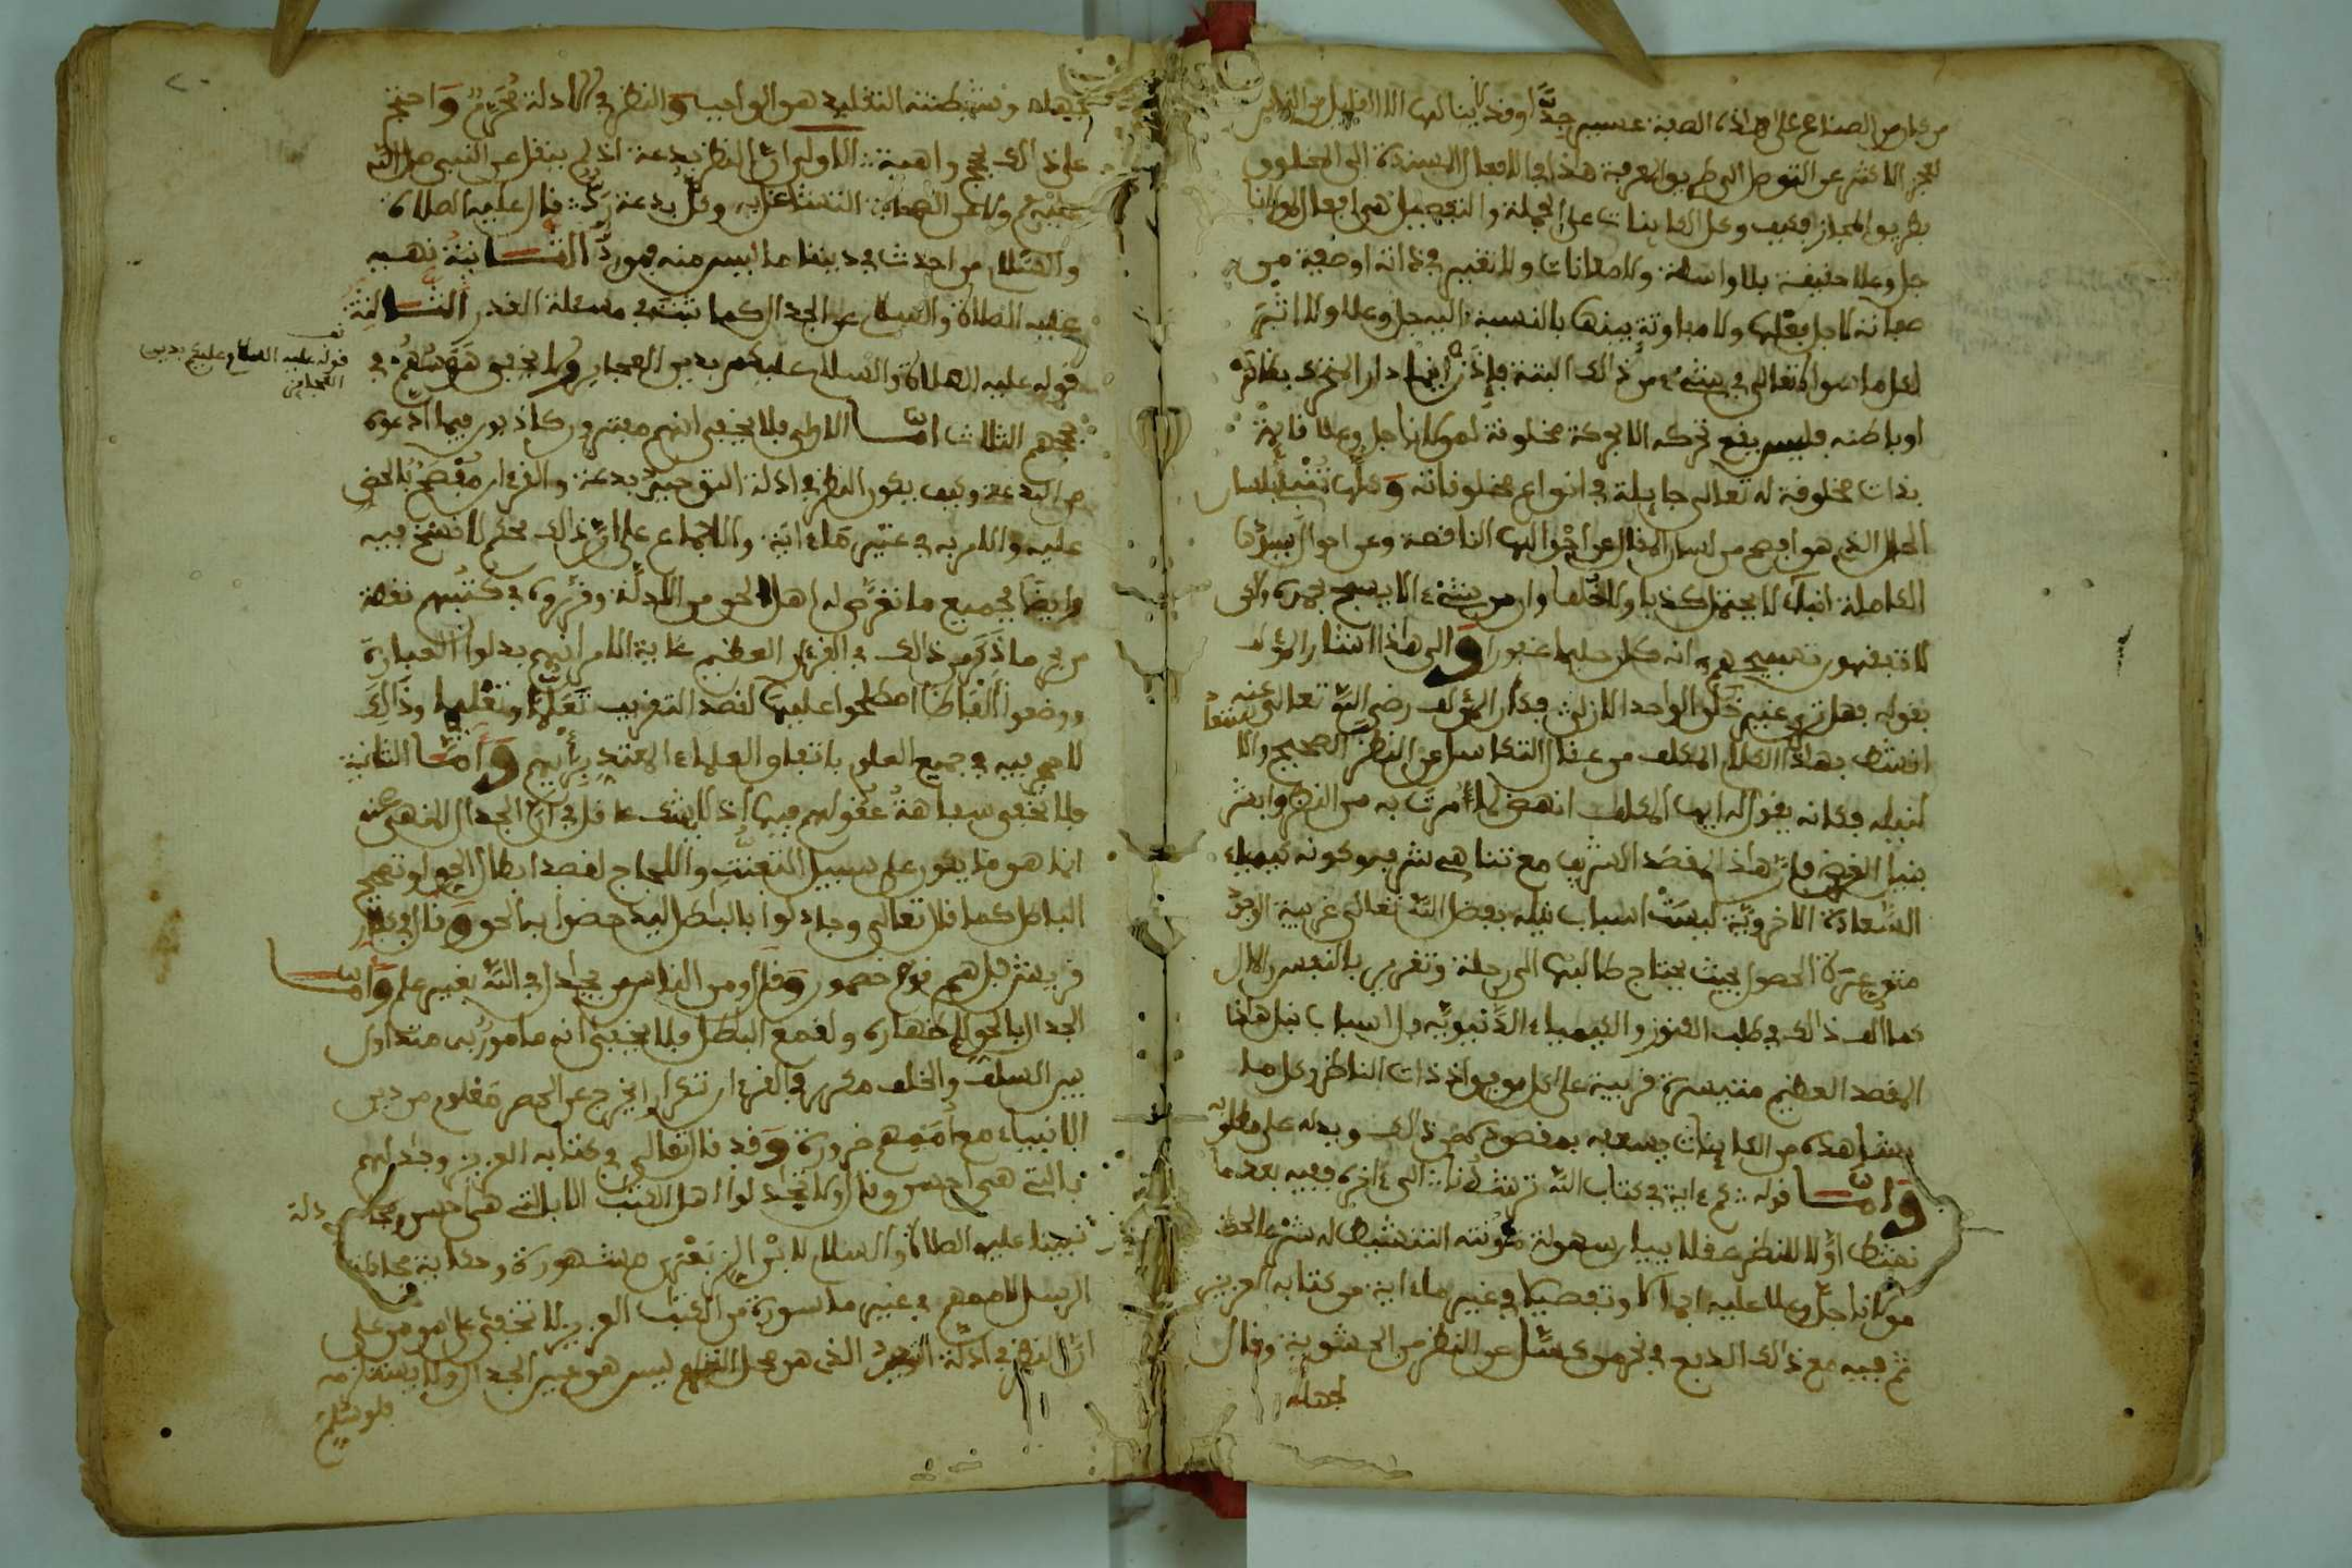 من كان من الصناع على هذه الصبة عسير جدا وقد لا ينالها الا القليل من الناس
بطريق المجاز فكيف وكل الكاينات على الجملة والتفصيل هي افعال لمولانا
جل وعلا حقيقة بلا واسطة ولا معانات ولا تغيير في ذاته او صفة من
صفاته لاجل فعلها ولا مفاوتة بينها بالنسبة اليه جل وعلا ولا اثر
لكل ما سواه تعالى في شيء من ذالك البتة فإذن اينما دار المتحرك بظاهره
او باطنه فليس يقع تحركه الا بحركة مخلوقة لمولانا جل وعلا قايمة
بذات مخلوقة له تعالى جايلة في انواع مخلوقاته وكلها تنبئ بلسان
الحال الذي هو افصح من لسان المقال عن احوالها الناقصة وعن احوال سيدها
الكاملة انباء لا يحتمل كذبا ولا خلفا وان من شيء الا يسبح بحمده ولكن
لا تفقهون تسبيحهم انه كان حليما غفورا والى هذا اشار المؤلف
بقوله فهل ترى غير خلق الواحد الازلي فكان المؤلف رضي الله تعالى عنه
انشط بهذا الكلام المكلف من عقال التكاسل عن النظر الصحيح والا
لنيله فكانه يقول له ايها المكلف انهض لما أمرت به من النظر وابشر
بنيل الغرض فان هذا المقصد الشريف مع تناهي شرفه وكونه كيمياء
السعادة الاخروية ليست اسباب نيله بفضل الله تعالى غريبة الوجود
متوعرة الحصول بحيث يحتاج طالبها الى رحلة وتغرير بالنفس والمال
كما الف ذالك في طلب الكنوز والكيمياء الدنيوية بل اسباب نيل هذا
المقصد العظيم متيسرة قريبة على كل موفق اذ ذات الناظر وكل ما
يشاهده من الكاينات يسعفه بمقصوده من ذالك ويدله على مطلوبه
واما قوله كم ءاية في كتاب الله ترشدنا الى ءاخره ففيه بعد ما
نشط اولا للنظر عقلا ببيان سهولة مئونته التنشيط له شرعا لحظ
مولانا جل وعلا عليه اجمالا وتفصيلا في غير ما ءاية من كتابه العزيز
ثم فيه مع ذالك الدفع في نحر من كسل عن النظر من الحشوية وقال
لجهله
لجهله ونشطته التقليد هو الواجب والنظر في الادلة محرم واحتج
على ذالك بحجج واهية الاولى ان النظر بدعة اذ لم ينقل عن النبي صلى الله
عليه ولا عن الصحابة التشاغل به وكل بدعة رد قال عليه الصلاة
والسلام من احدث في ديننا ما ليس منه فهو رد الثانية نهيه
عليه الصلاة والسلام عن الجدال كما ثبت في مسئلة القدر الثالثة
قوله عليه الصلاة والسلام عليكم بدين العجايز ولا يخفى هوسهم في
حججهم الثلاث اما الاولى فلا يخفى انهم مفترون كاذبون فيما ادعوه
من البدعة وكيف يكون النظر في ادلة التوحيد بدعة والقرءان مفصح بالحض
عليه والامر به في غير ما ءاية والاجماع على ان ذالك محكم لا نسخ فيه
وايضا فجميع ما تعرض له اهل الحق من الادلة وقرروه في كتبهم نقطة
من بحر ما ذكر من ذالك في القرءان العظيم غاية الامر انهم بدلوا العبارة
ووضعوا ألفاظا اصطلحوا عليها لقصد التقريب تعلما وتعليما وذالك
لا حجر فيه في جميع العلوم باتفاق العلماء المعتد برأيهم واما الثانية
فلا تخفى سفاهة عقولهم فيها اذ لا يشك عاقل في ان الجدال المنهي عنه
انما هو ما يكون على سبيل التعنت واللجاج لقصد ابطال الحق او تصحيح
الباطل كما قال تعالى وجادلوا بالباطل ليدحضوا به الحق وقال في كفار
قريش بل هم قوم خصمون وقال ومن الناس من يجادل في الله بغير علم واما
الجدال بالحق لاظهاره ولقمع الباطل فلا يخفى انه مامور به متداول
بين السلف والخلف مكرر في القرءان تكرارا يخرج عن الحصر معلوم من دين
الانبياء مع أممهم ضرورة وقد قال تعالى في كتابه العزيز وجادلهم
بالتي هي احسن وقال ولا تجادلوا اهل الكتب الا بالتي هي احسن ومجادلة
نبينا عليه الصلاة والسلام لابن الزبعرى مشهورة وحكاية مجادلة
الرسل لاممهم في غير ما سورة من الكتب العزيز لا تخفى على مومن على
ان النظر في ادلة التوحيد الذي هو محل النزاع ليس هو عين الجدال ولا يستلزمه
فلو سلم
قوله عليه السلام عليكم بدين
العجايز